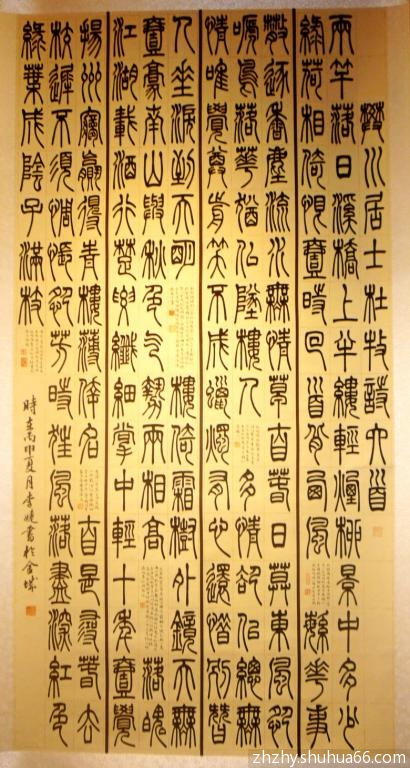 樊川居士杜牧詩六首
兩竿落日溪橋上半縷輕煙柳景中多少
綠荷相倚恨壹時回首背西風 繁華事
散逐香塵流水無情草自春日暮東風怨
啼鳥落花猶似墜樓人 多情卻似總無
情唯覺尊前笑不成蠟燭有心還惜別替
人垂淚到天明 樓倚霜樹外鏡天無
壹毫南山與秋色氣勢兩相高 落魄
江湖載酒行楚腰纖細掌中輕十年壹覺
揚州夢贏得青樓薄倖名 自是尋春去
校遲不須惆悵怨芳時狂風落盡深紅色
綠葉成陰子滿枝
時在丙申夏月李曉書於金城
zhzhy.shuhua66.com